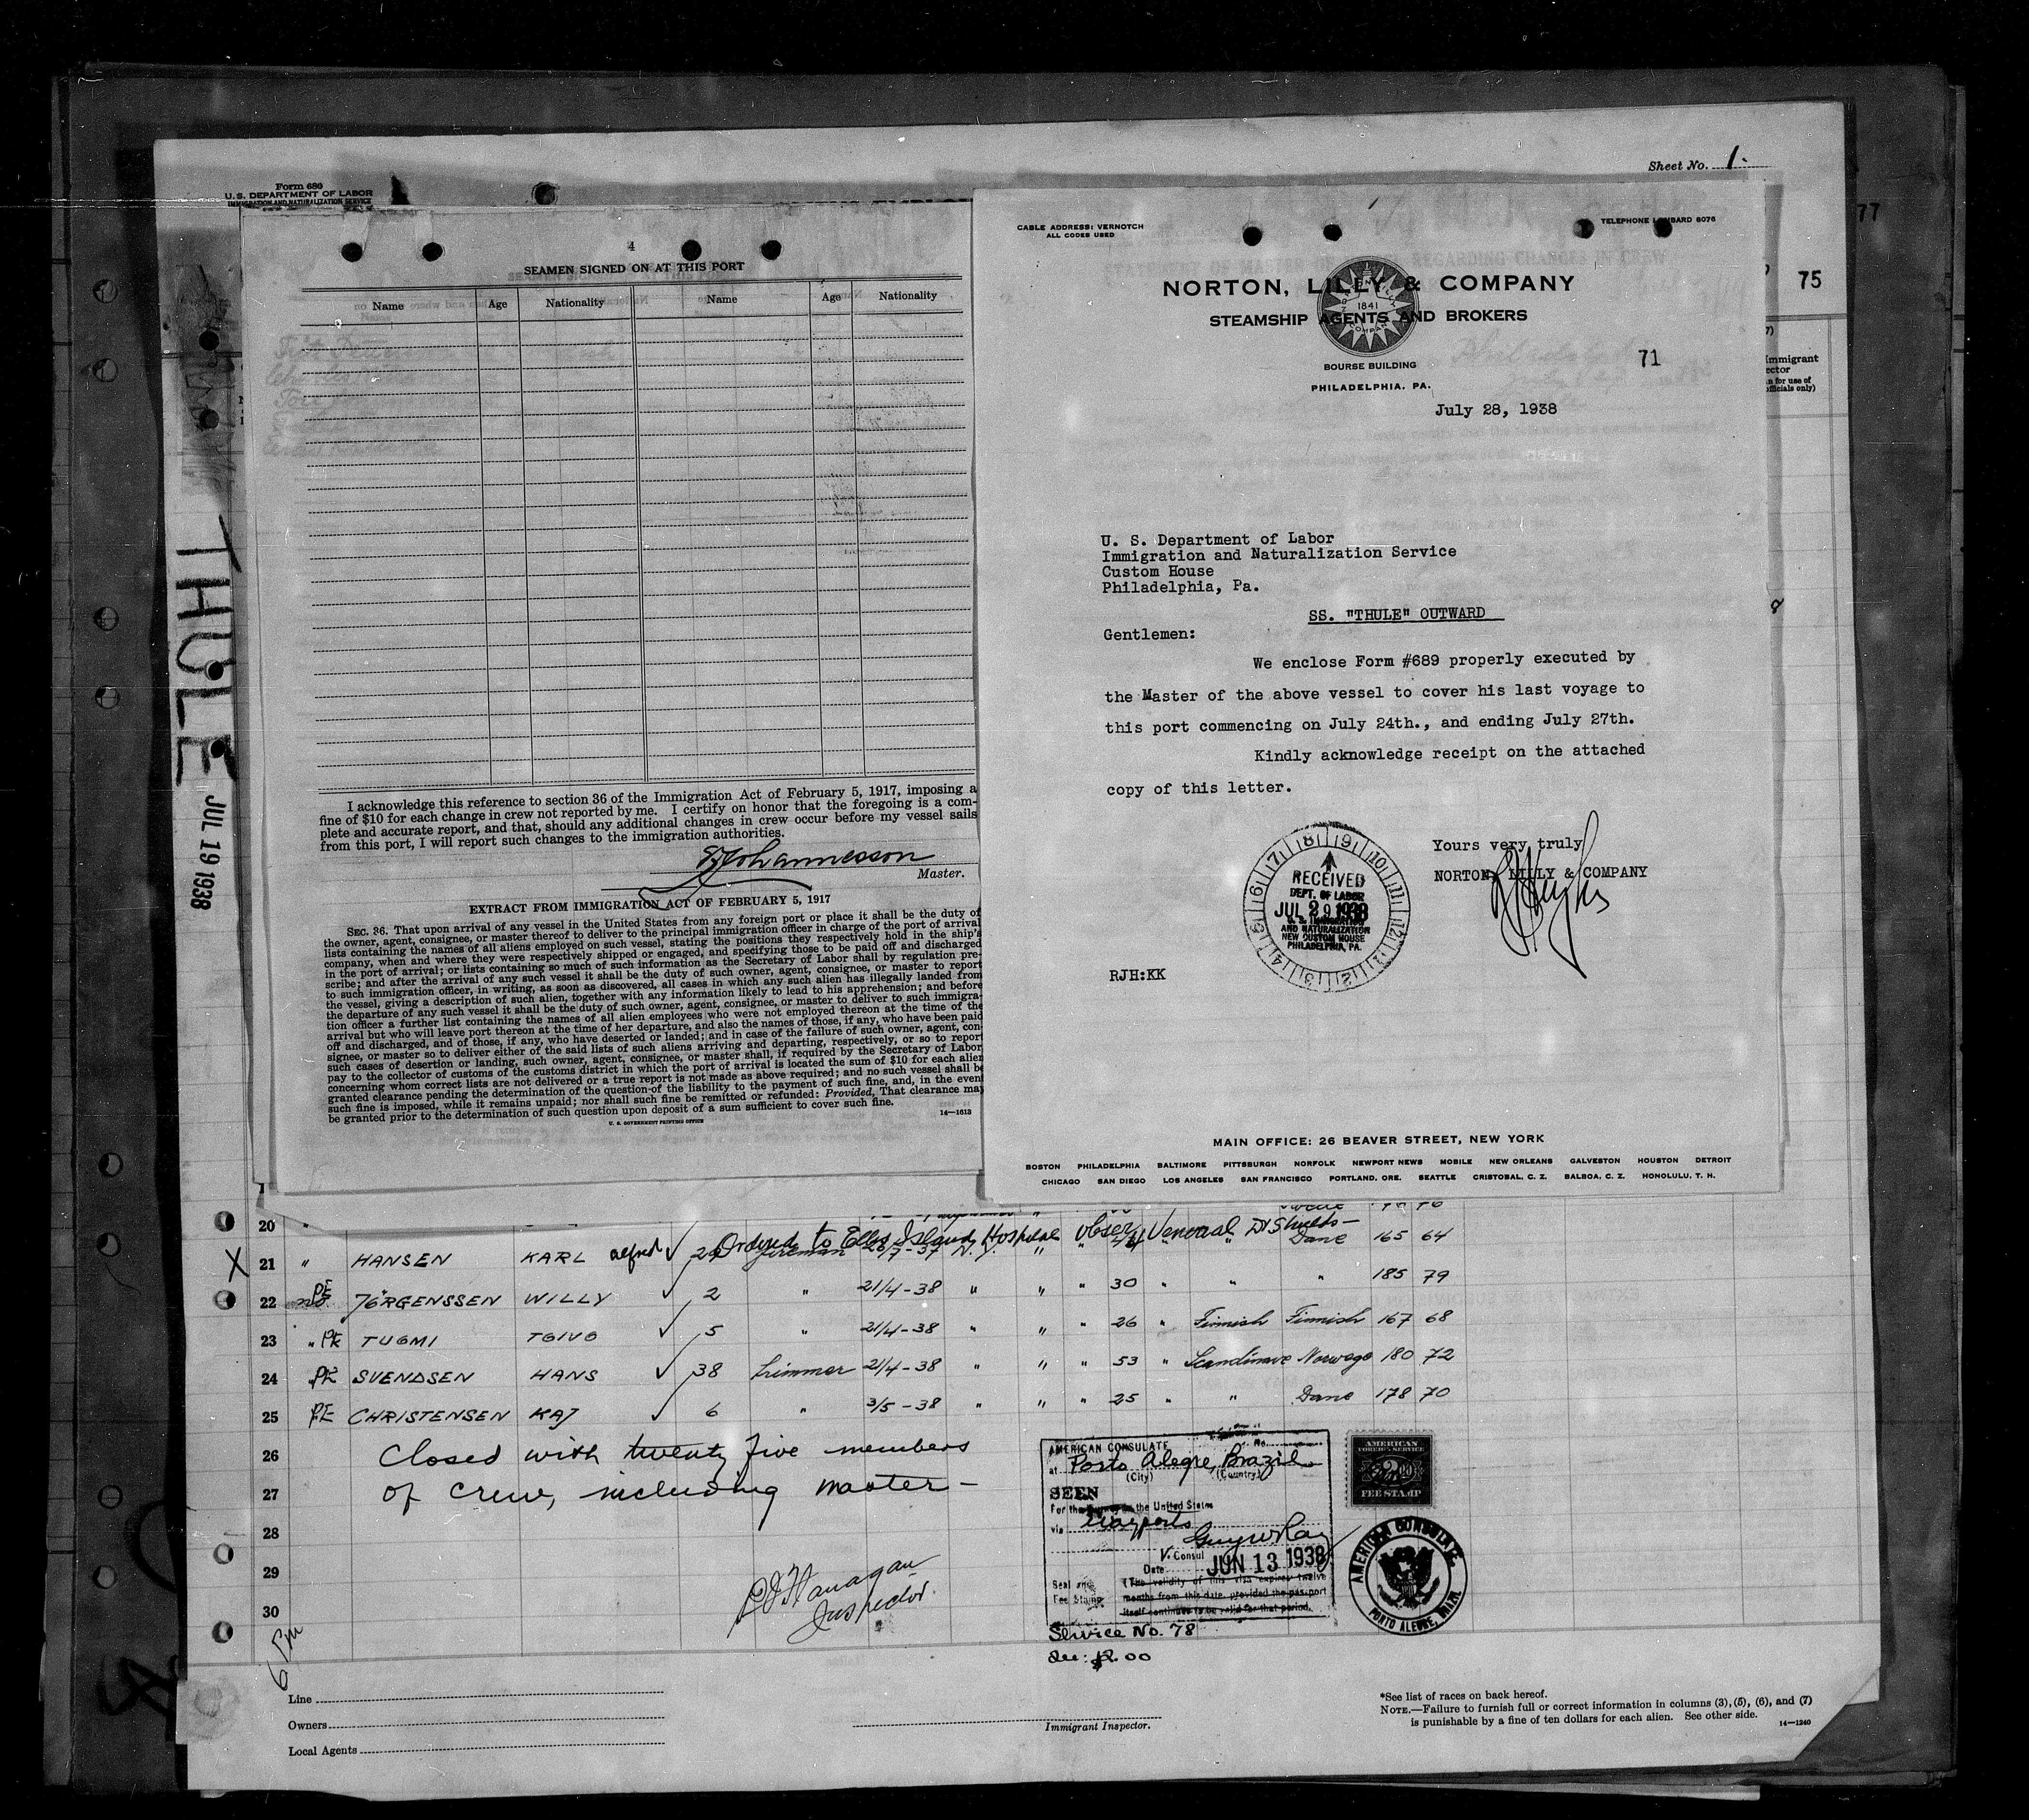 Sheet No. 1.
Form 680
U. S. DEPARTMENT OF LABOR
IMMIGRATION AND NATURALIZATION SERVICE
77
75
Immigrant
THULE
JUL 19 1938
4
SEAMEN SIGNED ON AT THIS PORT
Name Age Nationality Name Age Nationality
I acknowledge this reference to section 36 of the Immigration Act of February 5, 1917, imposing a
fine of $10 for each change in crew not reported by me. I certify on honor that the foregoing is a com-
plete and accurate report, and that, should any additional changes in crew occur before my vessel sails
from this port, I will report such changes to the immigration authorities.
Johannesson
Master.
EXTRACT FROM IMMIGRATION ACT OF FEBRUARY 5, 1917
SEC. 36. That upon arrival of any vessel in the United States from any foreign port or place it shall be the duty of
the owner, agent, consignee, or master thereof to deliver to the principal immigration officer in charge of the port of arrival
lists containing the names of all aliens employed on such vessel, stating the positions they respectively hold in the ship's
company, when and where they were respectively shipped or engaged, and specifying those to be paid off and discharged
in the port of arrival; or lists containing so much of such information as the Secretary of Labor shall by regulation pre-
scribe; and after the arrival of any such vessel it shall be the duty of such owner, agent, consignee, or master to report
to such immigration officer, in writing, as soon as discovered, all cases in which any such alien has illegally landed from
the vessel, giving a description of such alien, together with any information likely to lead to his apprehension; and before
the departure of any such vessel it shall be the duty of such owner, agent, consignee, or master to deliver to such immigra-
tion officer a further list containing the names of all alien employees who were not employed thereon at the time of the
arrival but who will leave port thereon at the time of her departure, and also the names of those, if any, who have been paid
off and discharged, and of those, if any, who have deserted or landed; and in case of the failure of such owner, agent, con-
signee, or master so to deliver either of the said lists of such aliens arriving and departing, respectively, or so to report
such cases of desertion or landing, such owner, agent, consignee, or master shall, if required by the Secretary of Labor,
pay to the collector of customs of the customs district in which the port of arrival is located the sum of $10 for each alien
concerning whom correct lists are not delivered or a true report is not made as above required; and no such vessel shall be
granted clearance pending the determination of the question of the liability to the payment of such fine, and, in the event
such fine is imposed, while it remains unpaid; nor shall such fine be remitted or refunded: Provided, That clearance may
be granted prior to the determination of such question upon deposit of a sum sufficient to cover such fine.
14—1613
U. S. GOVERNMENT PRINTING OFFICE
CABLE ADDRESS: VERNOTCH
ALL CODES USED
TELEPHONE LOMBARD 6076
NORTON, LILLY & COMPANY
1841
STEAMSHIP AGENTS AND BROKERS
BOURSE BUILDING
PHILADELPHIA, PA.
71
July 28, 1938
U. S. Department of Labor
Immigration and Naturalization Service
Custom House
Philadelphia, Pa.
SS. "THULE" OUTWARD
Gentlemen:
We enclose Form #689 properly executed by
the Master of the above vessel to cover his last voyage to
this port commencing on July 24th., and ending July 27th.
Kindly acknowledge receipt on the attached
copy of this letter.
Yours very truly
NORTON, LILLY & COMPANY
RECEIVED
DEPT. OF LABOR
JUL 29 1938
U. S. IMMIGRATION
AND NATURALIZATION
NEW CUSTOM HOUSE
PHILADELPHIA, PA.
RJH:KK
MAIN OFFICE: 26 BEAVER STREET, NEW YORK
BOSTON PHILADELPHIA BALTIMORE PITTSBURGH NORFOLK NEWPORT NEWS MOBILE NEW ORLEANS GALVESTON HOUSTON DETROIT
CHICAGO SAN DIEGO LOS ANGELES SAN FRANCISCO PORTLAND, ORE. SEATTLE CRISTOBAL, C. Z. BALBOA, C. Z. HONOLULU, T. H.
20
Ordered to Ellis Island Hospital Obser Venereal
X 21 " HANSEN KARL alfred ✓ fireman N.Y. " " " " Dane 165 64
22 PE JÖRGENSSEN WILLY ✓ 2 " 21/4-38 " " " 30 " " " 185 79
23 " PE TUGMI TOIVO ✓ 5 " 21/4-38 " " " 26 " Finnish Finnish 167 68
24 PE SVENDSEN HANS ✓ 38 trimmer 21/4-38 " " " 53 " Scandinave Norwege 180 72
25 PE CHRISTENSEN KAJ ✓ 6 " 3/5-38 " " " 25 " " Dane 178 70
26 Closed with twenty five members
27 of crew, including master —
28
29
30
Flanagan
Inspector.
6 Pm
AMERICAN CONSULATE No.
at Porto Alegre, Brazil
(City) (Country)
SEEN
For the the United States
via wayports
V. Consul
Date JUN 13 1938
Seal and
Fee Stamp
(The validity of this visa expires twelve
months from this date, provided the passport
itself continues to be valid for that period.
Service No. 78
$2.00
AMERICAN
FOREIGN SERVICE
FEE STAMP
AMERICAN CONSULATE.
PORTO ALEGRE, BRAZIL
Line
Owners
Local Agents
Immigrant Inspector.
*See list of races on back hereof.
NOTE.—Failure to furnish full or correct information in columns (3), (5), (6), and (7)
is punishable by a fine of ten dollars for each alien. See other side.
14—1240